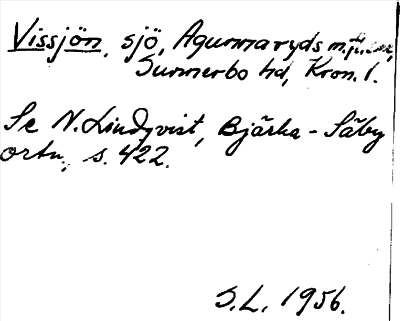 Vissjön, sjö, Agunnaryds m.fl. snr,
Sunnerbo hd, Kron. l.
Se N. Lindqvist, Bjärka-Säby
ortn., s. 422.
S.L. 1956.